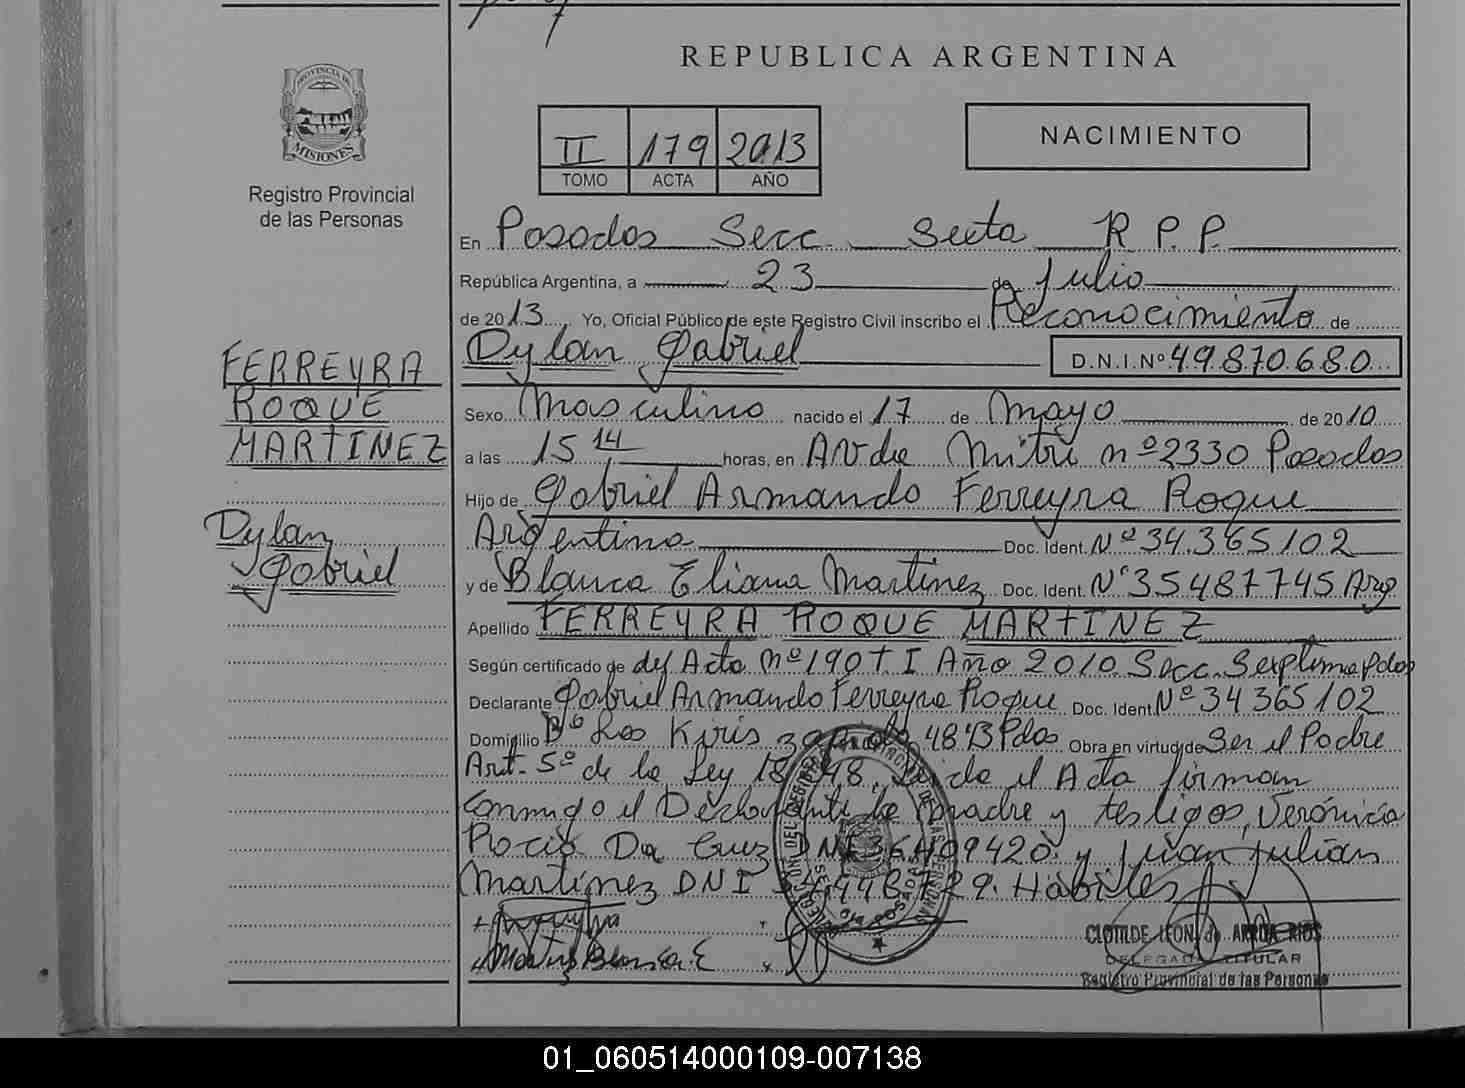 REPUBLICA ARGENTINA
PROVINCIA DE
MISIONES
Registro Provincial
de las Personas
II 179 2013
TOMO ACTA AÑO
NACIMIENTO
En Posadas Secc. Sexta R.P.P.
República Argentina, a 23 de Julio
de 2013, Yo, Oficial Público de este Registro Civil inscribo el Reconocimiento de
Dylan Gabriel D.N.I. Nº 49.870.680
FERREYRA
ROQUE
MARTINEZ
Dylan
Gabriel
Sexo Masculino nacido el 17 de Mayo de 2010
a las 15 14 horas, en Avda Mitre nº 2330 Posadas
Hijo de Gabriel Armando Ferreyra Roque
Argentino Doc. Ident. Nº 34.365102
y de Blanca Eliana Martinez Doc. Ident. Nº 35487745 Arg.
Apellido FERREYRA ROQUE MARTINEZ
Según certificado de del Acta Nº 190 T I Año 2010. Secc. Septima Pdas
Declarante Gabriel Armando Ferreyra Roque Doc. Ident. Nº 34 365102
Domicilio Bº Los Kiris 48 B Pdas Obra en virtud de Ser el Padre
Art. 5º de la Ley Leida el Acta firman
conmigo el Declarante la madre y testigos, Verónica
Rocio Da Cruz DNI 36409420 y Juan Julian
Martinez DNI Habiles
Martinez Blanca E
CLOTILDE LEON de ARRUA RIOS
DELEGADA TITULAR
Registro Provincial de las Personas
01_060514000109-007138